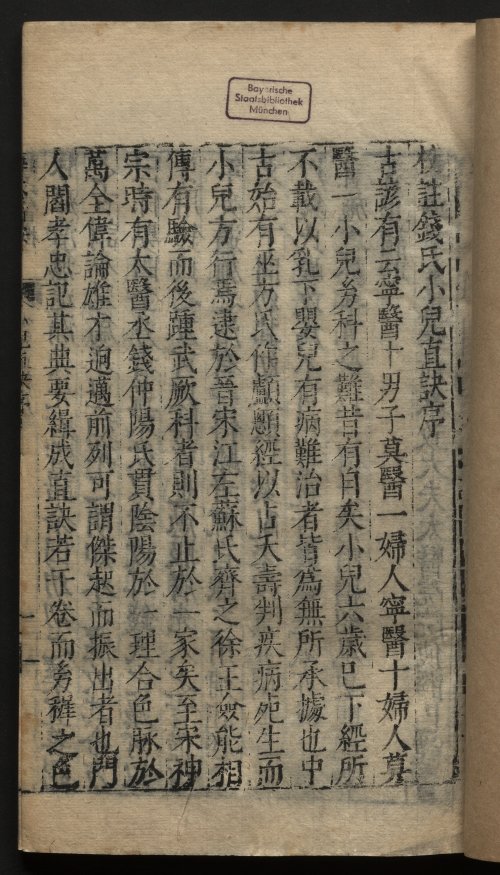 Bayerische
Staatsbibliothek
München
校註錢氏小兒直訣序
古諺有云寧醫十男子莫醫一婦人寧醫十婦人莫
醫一小兒夯科之難昔有自矣小兒六歲巳下經所
不載以乳下嬰兒有病難治者皆為無所承據也中
古始有巫方氏作顱顖經以占夭壽判疾病死生而
小兒方行焉逮於晉宋江左蘇氏齊之徐王僉能相
傳有驗而後踵武厥科者則不止於一家矣至宋神
宗時有太醫丞錢仲陽氏貫陰陽於一理合色脉於
萬全偉論雄才逈邁前列可謂傑起而振出者也門
人閻孝忠記其典要緝成直訣若干卷而夯稚之色